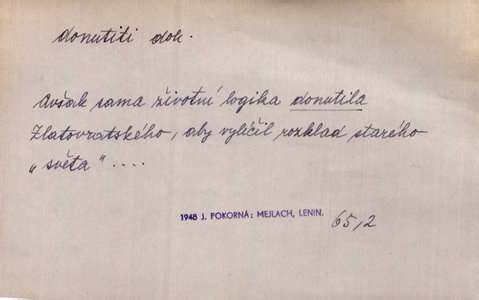 donutiti dok.
Avšak sama životní logika donutila
Zlatovratského, aby vylíčil rozklad starého
„světa" ....
1948 J. POKORNÁ: MEJLACH, LENIN. 65,2